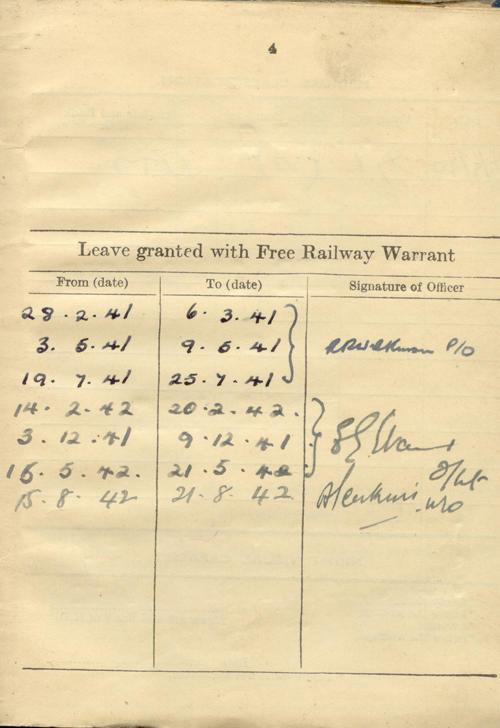 4
Leave granted with Free Railway Warrant
From (date) To (date) Signature of Officer
28 . 2 . 41 6 . 3 . 41
3 . 5 . 41 9 . 5 . 41 P/O
19 . 7 . 41 25 . 7 . 41
14 . 2 . 42 20 . 2 . 42 .
3 . 12 . 41 9 . 12 . 41
15 . 5 . 42 . 21 . 5 . 42
15 . 8 . 42 21 . 8 . 42